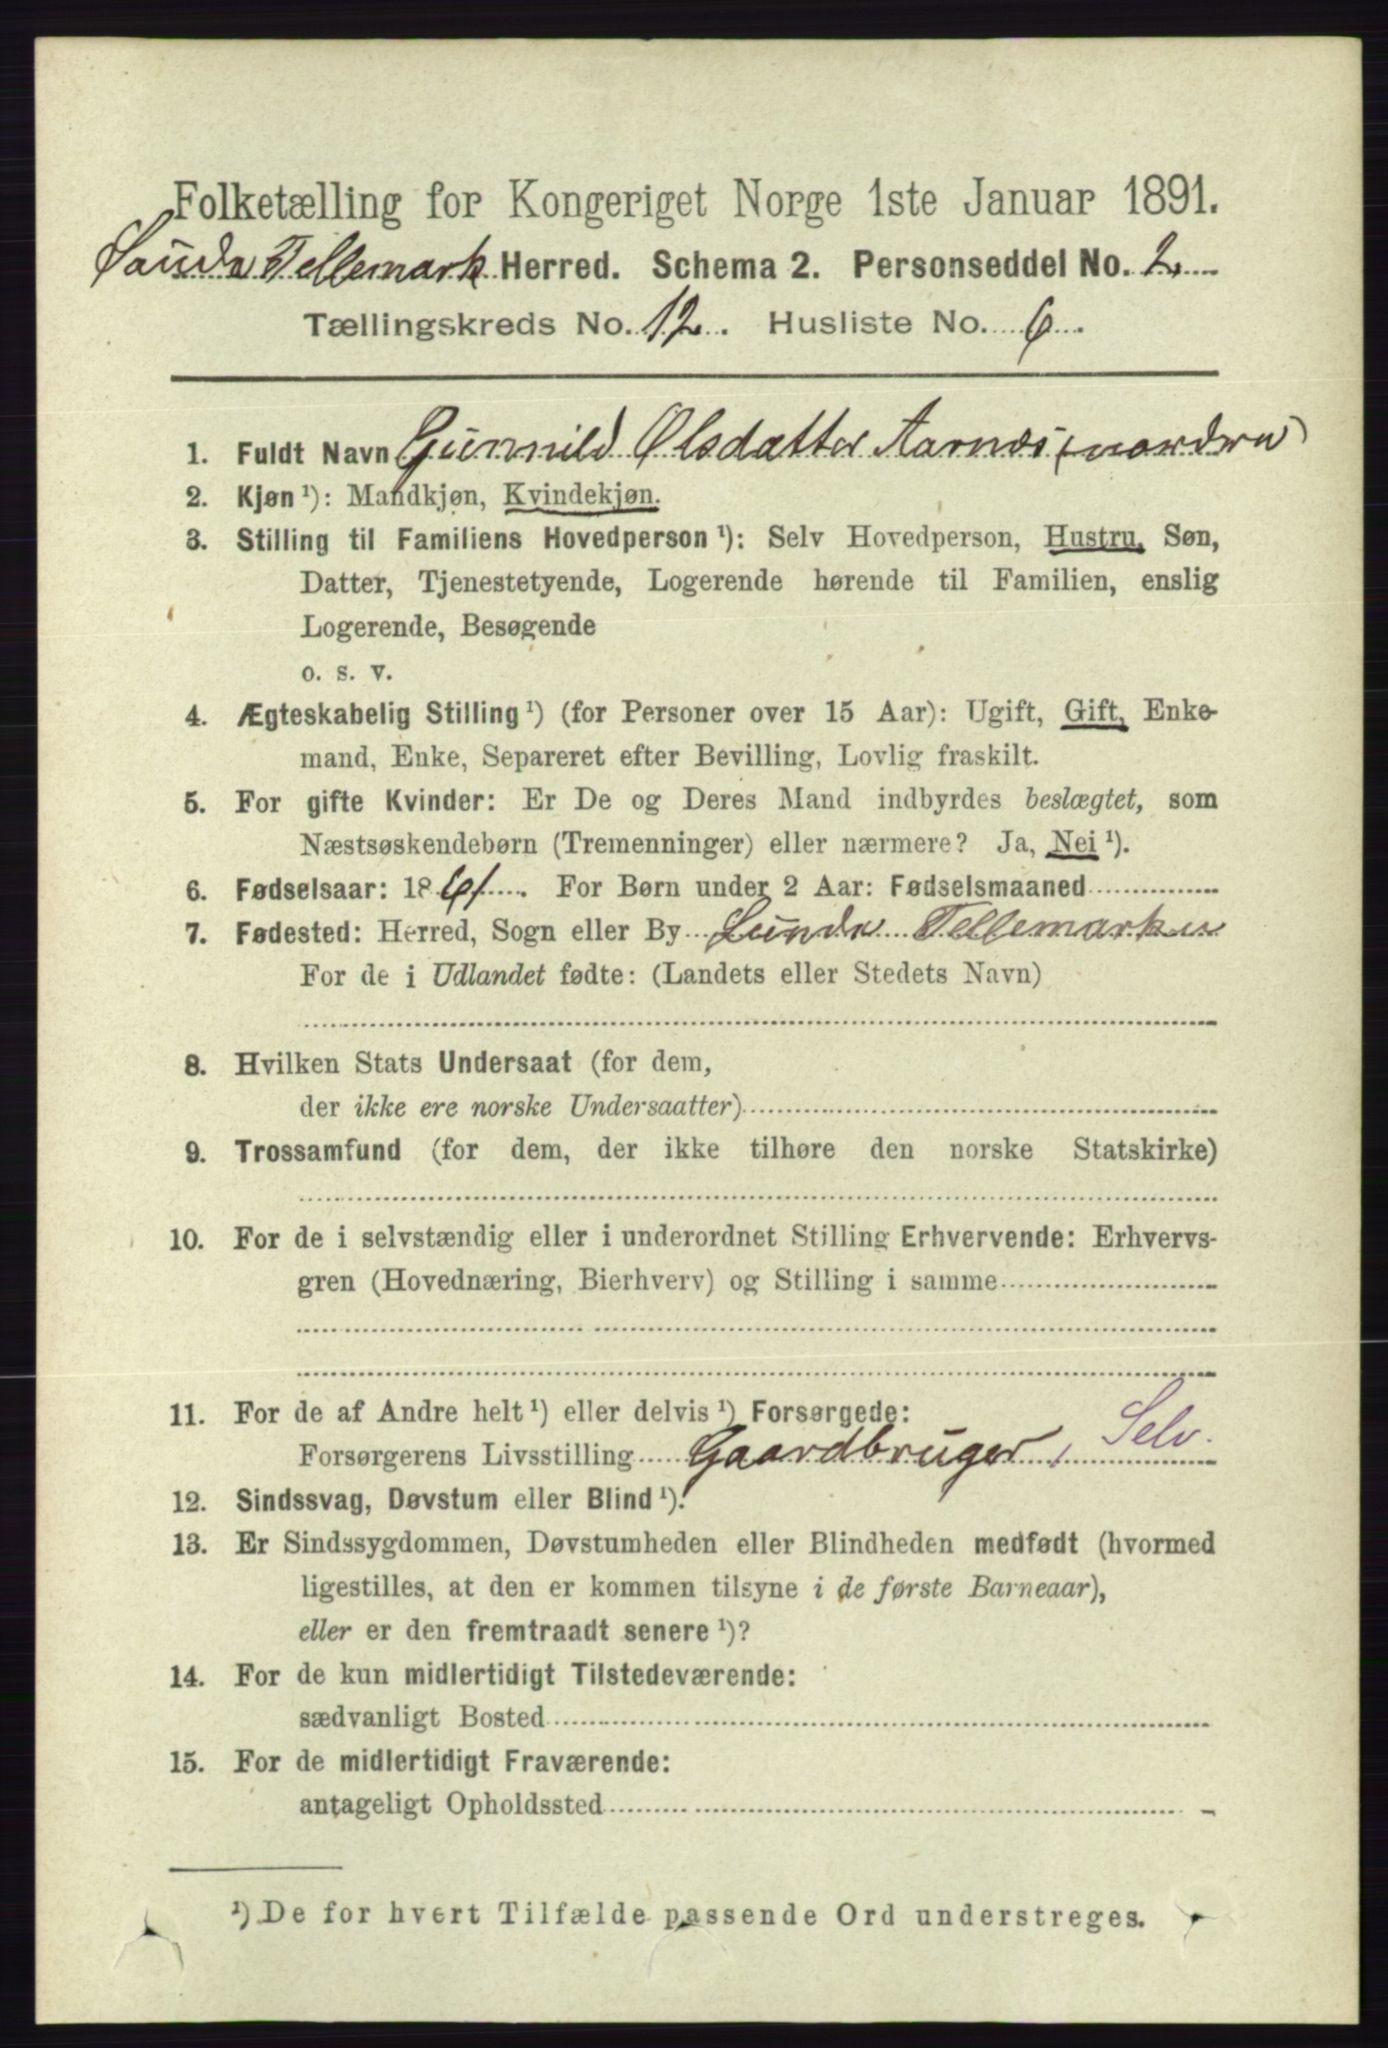 Folketælling for Kongeriget Norge 1ste Januar 1891.
Saude Tellemark Herred. Schema 2. Personseddel No. 2
Tællingskreds No. 12. Husliste No. 6.
1. Fuldt Navn Gunnild Olsdatter Aarnæs (nordre)
2. Kjøn ¹): Mandkjøn, Kvindekjøn.
3. Stilling til Familiens Hovedperson ¹): Selv Hovedperson, Hustru, Søn,
Datter, Tjenestetyende, Logerende hørende til Familien, enslig
Logerende, Besøgende
o. s. v.
4. Ægteskabelig Stilling ¹) (for Personer over 15 Aar): Ugift, Gift, Enke-
mand, Enke, Separeret efter Bevilling, Lovlig fraskilt.
5. For gifte Kvinder: Er De og Deres Mand indbyrdes beslægtet, som
Næstsøskendebørn (Tremenninger) eller nærmere? Ja, Nei ¹).
6. Fødselsaar: 1861. For Børn under 2 Aar: Fødselsmaaned
7. Fødested: Herred, Sogn eller By Lunde Tellemarken
For de i Udlandet fødte: (Landets eller Stedets Navn)
8. Hvilken Stats Undersaat (for dem,
der ikke ere norske Undersaatter)
9. Trossamfund (for dem, der ikke tilhøre den norske Statskirke)
10. For de i selvstændig eller i underordnet Stilling Erhvervende: Erhvervs-
gren (Hovednæring, Bierhverv) og Stilling i samme
11. For de af Andre helt ¹) eller delvis ¹) Forsørgede:
Forsørgerens Livsstilling Gaardbruger, Selv.
12. Sindssvag, Døvstum eller Blind ¹).
13. Er Sindssygdommen, Døvstumheden eller Blindheden medfødt (hvormed
ligestilles, at den er kommen tilsyne i de første Barneaar),
eller er den fremtraadt senere ¹)?
14. For de kun midlertidigt Tilstedeværende:
sædvanligt Bosted
15. For de midlertidigt Fraværende:
antageligt Opholdssted
¹) De for hvert Tilfælde passende Ord understreges.